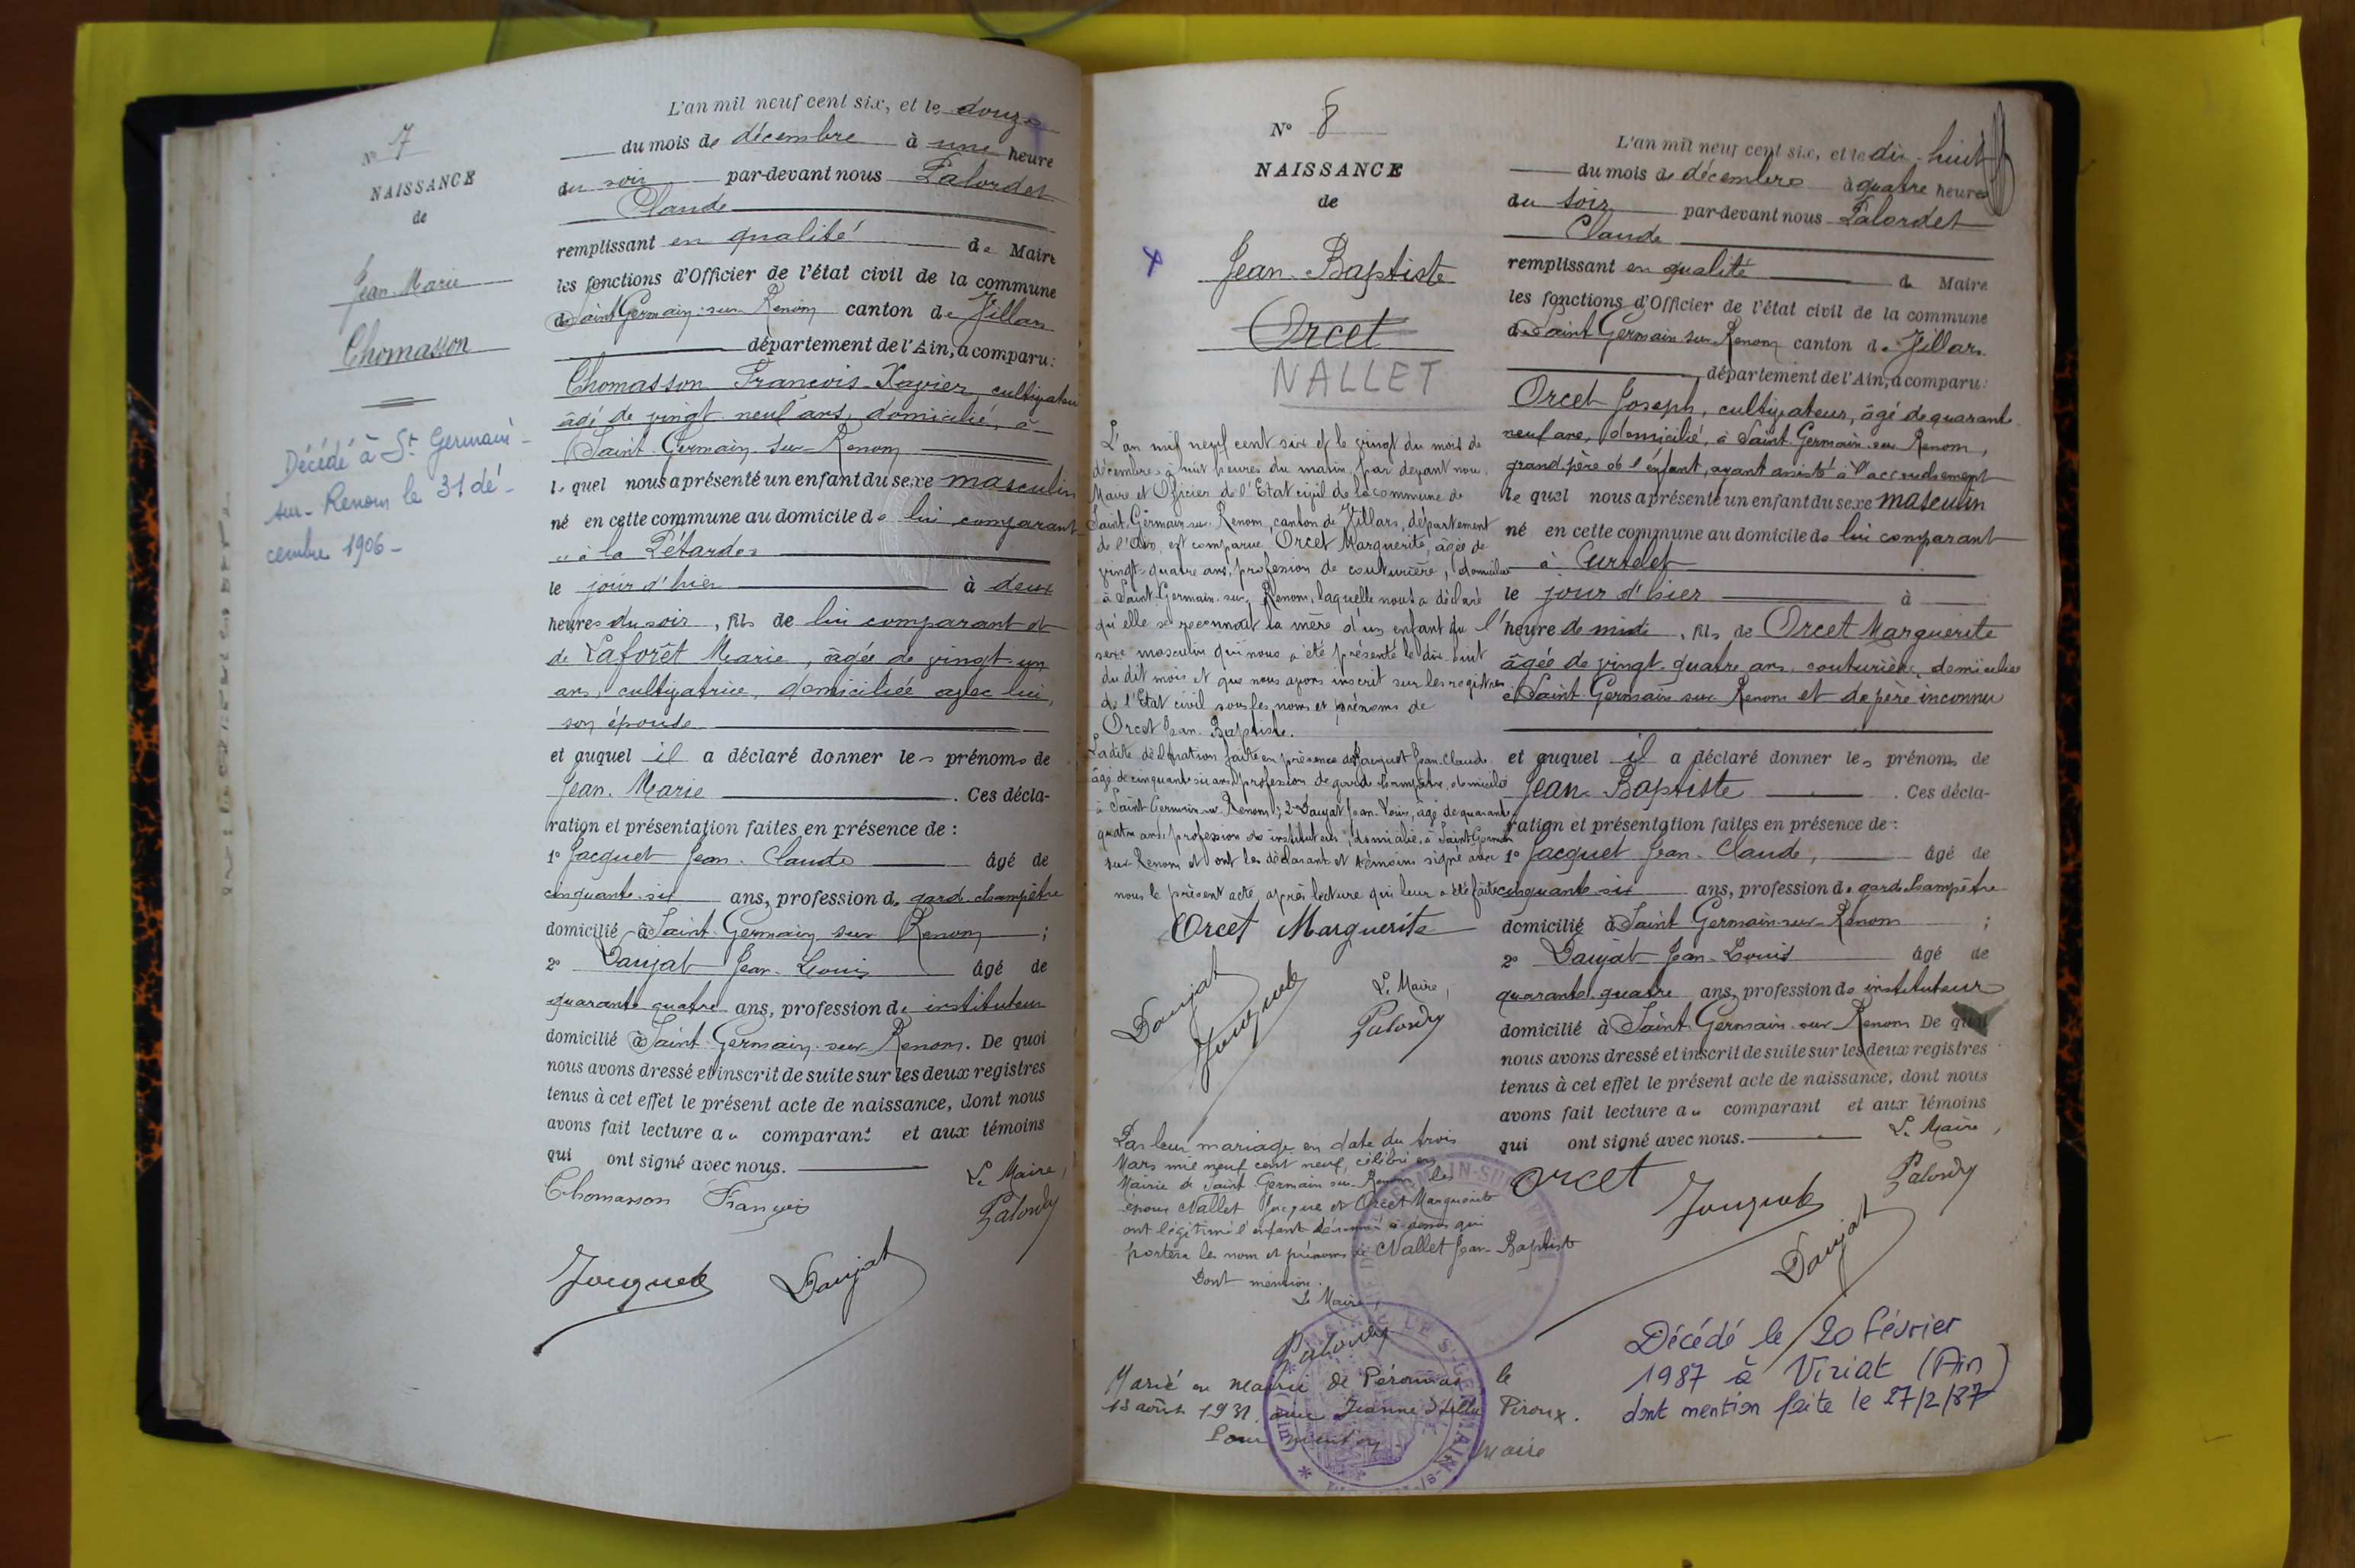 N° 7
NAISSANCE
de
Jean Marie
Chomasson
Décédé à St Germain-
sur-Renom le 31 dé-
cembre 1906-
L'an mil neuf cent six, et le douze
du mois de décembre à une heure
du soir par-devant nous Palordet
Claude
remplissant en qualité de Maire
les fonctions d'Officier de l'état civil de la commune
de Saint Germain-sur Renom canton de Villars
département de l'Ain, a comparu:
Chomasson François-Xavier, cultivateur
âgé de vingt neuf ans, domicilié, à
Saint Germain sur Renom
le quel nous a présenté un enfant du sexe masculin
né en cette commune au domicile de lui comparant
à la Pétardes
le jour d'hier à deux
heures du soir, fils de lui comparant et
de Laforêt Marie, âgée de vingt un
ans, cultivatrice, domiciliée avec lui,
son épouse
et auquel il a déclaré donner les prénoms de
Jean. Marie. Ces décla-
ration et présentation faites en présence de :
1° Jacquet Jean. Claude âgé de
cinquante-six ans, profession de garde champêtre
domicilié à Saint Germain sur Renom ;
2° Daujat Jean-Louis âgé de
quarante quatre ans, profession de instituteur
domicilié à Saint Germain sur Renom. De quoi
nous avons dressé et inscrit de suite sur les deux registres
tenus à cet effet le présent acte de naissance, dont nous
avons fait lecture au comparant et aux témoins
qui ont signé avec nous.
Le Maire,
Chomasson François
Daujat
N° 8
NAISSANCE
de
Jean-Baptiste
Orcet
NALLET
L'an mil neuf cent six et le vingt du mois de
décembre à huit heures du matin, par devant nous
Maire et Officier de l'Etat civil de la commune de
Saint Germain sur Renom, canton de Villars, département
de l'Ain, est comparue Orcet Marguerite, âgée de
vingt-quatre ans, profession de couturière, domiciliée
à Saint Germain-sur Renom, laquelle nous a déclaré
qu'elle se reconnaît la mère d'un enfant du
sexe masculin qui nous a été présenté le dix-huit
du dit mois et que nous avons inscrit sur les registres
de l'Etat civil sous les noms et prénoms de
Orcet Jean Baptiste.
La dite déclaration faite en présence de Jacquet Jean-Claude
âgé de cinquante six ans profession de garde champêtre, domicilié
à Saint Germain-sur-Renom; 2° Daujat Jean-Louis, âgé de quarante
quatre ans, profession de instituteur, domicilié, à Saint Germain
sur Renom et ont les déclarante et témoins signé avec
nous le présent acte, après lecture qui leur a été faite
Orcet Marguerite
Daujat
Le Maire,
Par leur mariage en date du trois
Mars mil neuf cent neuf, célébré en
Mairie de Saint Germain sur-Renom, les
époux Nallet Jacque et Orcet Marguerite
ont légitimé l'enfant dénommé ci-dessus qui
portera les nom et prénoms de Nallet Jean-Baptiste
Dont mention.
Le Maire,
Marié en Mairie de Péronnas le
13 août 1931 avec Jeanne Piroux.
Pour mention
Maire
L'an mil neuf cent six, et le dix-huit
du mois de décembre à quatre heures
du soir par-devant nous Palordet
Claude
remplissant en qualité de Maire
les fonctions d'Officier de l'état civil de la commune
de Saint Germain sur Renom canton de Villars
département de l'Ain, a comparu:
Orcet Joseph, cultivateur, âgé de quarante
neuf ans, domicilié, à Saint Germain sur Renom,
grand père de l'enfant, ayant assisté à l'accouchement
le quel nous a présenté un enfant du sexe masculin
né en cette commune au domicile de lui comparant
à Curtelet
le jour d'hier à
l'heure de midi, fils de Orcet Marguerite
âgée de vingt-quatre ans, couturière, domiciliée
à Saint Germain sur Renom et de père inconnu
et auquel il a déclaré donner les prénoms de
Jean Baptiste. Ces décla-
ration et présentation faites en présence de :
1° Jacquet Jean-Claude, âgé de
cinquante six ans, profession de garde champêtre
domicilié à Saint Germain-sur-Renom ;
2° Daujat Jean-Louis âgé de
quarante quatre ans, profession de instituteur
domicilié à Saint Germain sur Renom De quoi
nous avons dressé et inscrit de suite sur les deux registres
tenus à cet effet le présent acte de naissance, dont nous
avons fait lecture au comparant et aux témoins
qui ont signé avec nous.
Le Maire,
Orcet
Daujat
Décédé le 20 février
1987 à Viriat (Ain)
dont mention faite le 27/2/87